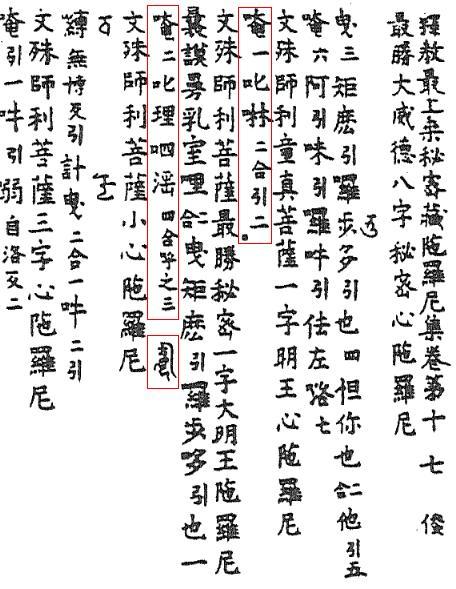 釋教最上乘秘密藏陁羅尼集卷第十七 俊
最勝大威德八字秘密心陁羅尼
曳三矩麽引羅步多引也四怛你也二合他引五
唵六阿引味引羅吽引佉左咯七
文殊師利童真菩薩一字明王心陁羅尼
唵一叱啉二合引二
文殊師利菩薩最勝秘密一字大明王陁羅尼
曩謨曼乳室哩二合曳矩麽引羅步哆引也一
唵二叱理呬滛四合呼之三
文殊師利菩薩小心陁羅尼
縛無博反引計曳二合一吽二引
文殊師利菩薩三字心陁羅尼
唵引一吽引弱自洛反二